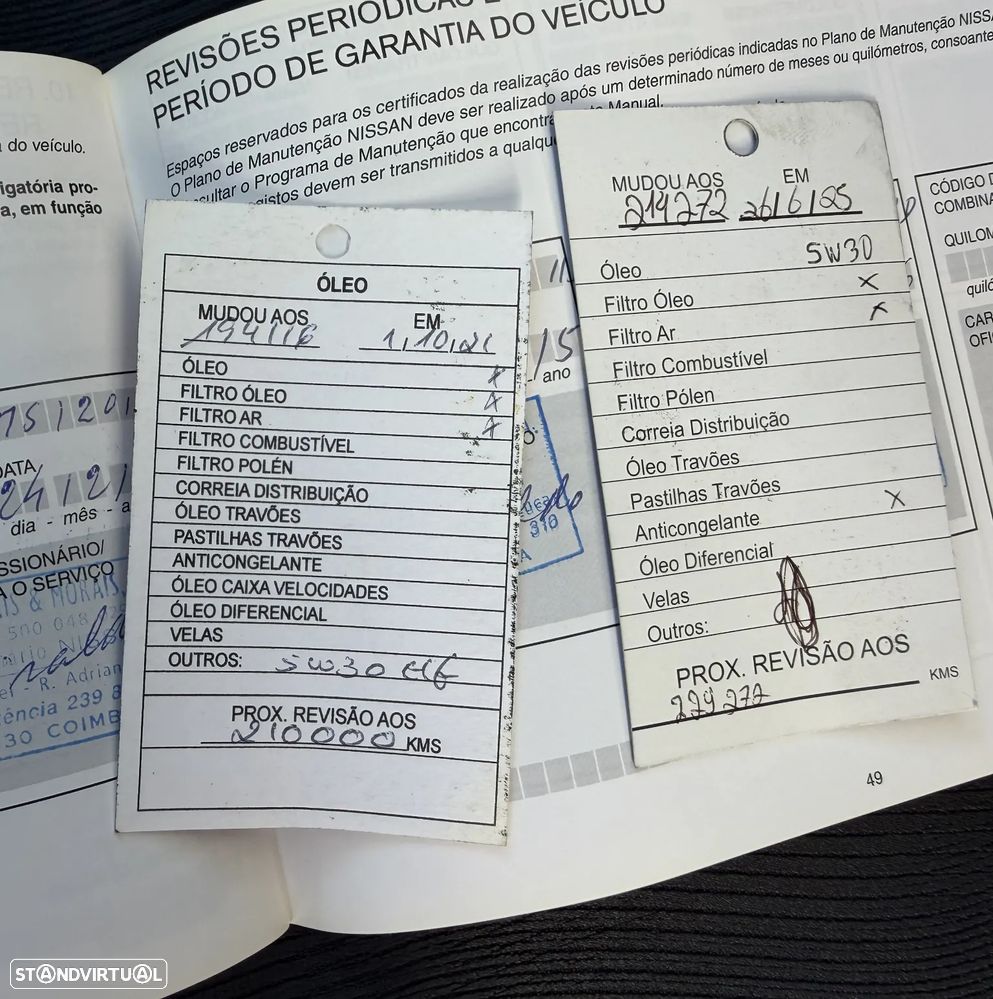 REVISÕES PERIÓDICAS
PERÍODO DE GARANTIA DO VEÍCULO
Espaços reservados para os certificados da realização das revisões periódicas indicadas no Plano de Manutenção NISSA
O Plano de Manutenção NISSAN deve ser realizado após um determinado número de meses ou quilómetros, consoante
sultar o Programa de Manutenção que encontra Manual.
gistos devem ser transmitidos a qualqu
do veículo.
igatória pro-
a, em função
15/201
DATA
24/2/
dia - mês - a
SSIONÁRIO/
A O SERVIÇO
IS & MORAIS,
500 048
R. Adrian
ência 239 8
30 COIMB
ÓLEO
MUDOU AOS EM
194116
ÓLEO x
FILTRO ÓLEO x
FILTRO AR x
FILTRO COMBUSTÍVEL
FILTRO POLÉN
CORREIA DISTRIBUIÇÃO
ÓLEO TRAVÕES
PASTILHAS TRAVÕES
ANTICONGELANTE
ÓLEO CAIXA VELOCIDADES
ÓLEO DIFERENCIAL
VELAS
OUTROS: 5W30
PROX. REVISÃO AOS
210000 KMS
/15
ano
310
MUDOU AOS EM
214272 26/6/25
Óleo 5W30
Filtro Óleo x
Filtro Ar x
Filtro Combustível
Filtro Pólen
Correia Distribuição
Óleo Travões
Pastilhas Travões
Anticongelante x
Óleo Diferencial
Velas
Outros:
PROX. REVISÃO AOS
229272 KMS
CÓDIGO D
COMBINA
QUILOM
quiló
CAR
OFI
49
STANDVIRTUAL